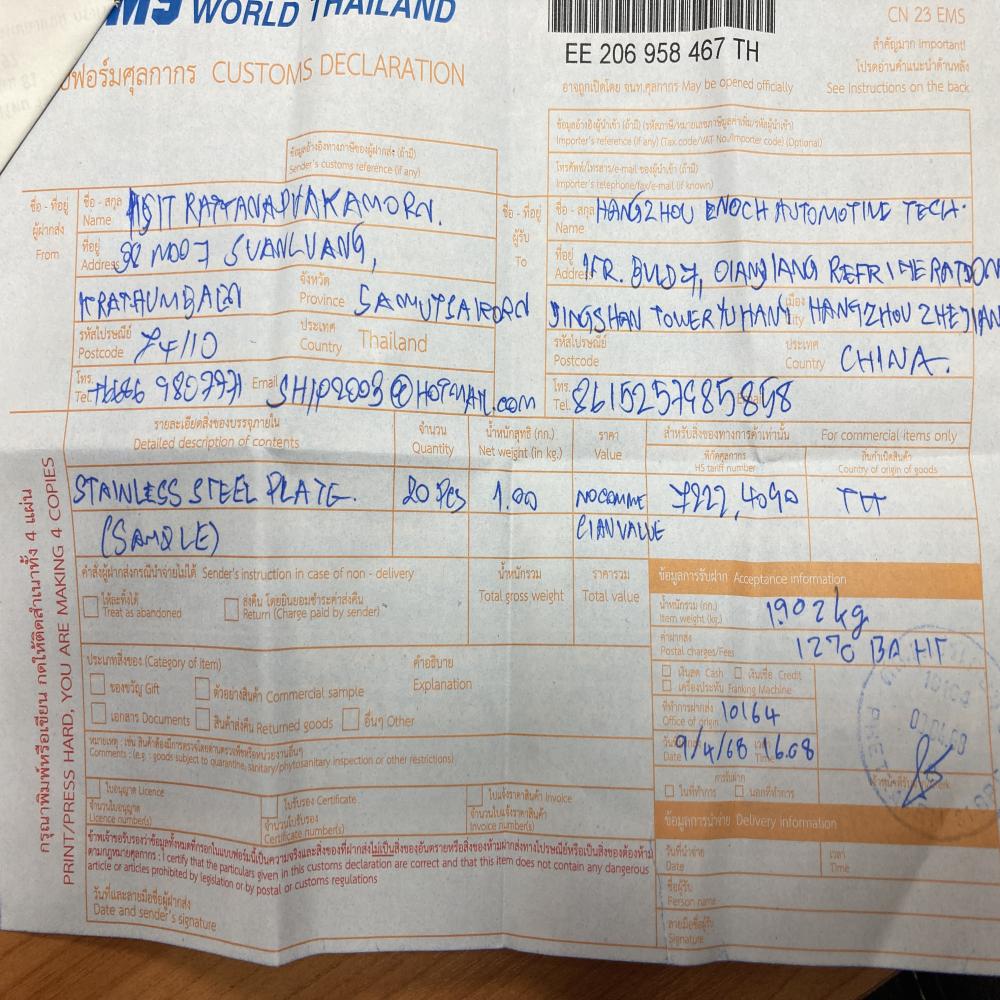 WORLD THAILAND
CN 23 EMS
EE 206 958 467 TH
สำคัญมาก Important!
ฟอร์มศุลกากร CUSTOMS DECLARATION
โปรดอ่านคำแนะนำด้านหลัง
อาจถูกเปิดโดย จนท.ศุลกากร May be opened officially
See Instructions on the back
ข้อมูลอ้างอิงทางภาษีของผู้ฝากส่ง (ถ้ามี)
Sender's customs reference (if any)
ข้อมูลอ้างอิงผู้นำเข้า (ถ้ามี)
Importer's reference (if any) (Tax code/VAT No./Importer code) (Optional)
โทรศัพท์/โทรสาร/e-mail ของผู้นำเข้า (ถ้ามี)
Importer's telephone/fax/e-mail (if known)
ชื่อ - ที่อยู่
ผู้ฝากส่ง
From
ชื่อ - สกุล
Name
ที่อยู่
Address 98 MOO 7 SUANLUANG,
จังหวัด
Province
รหัสไปรษณีย์
Postcode 74110
ประเทศ
Country Thailand
โทร.
Tel.
Email @HOTMAIL.COM
ชื่อ - ที่อยู่
ผู้รับ
To
ชื่อ - สกุล HANGZHOU ENOCH AUTOMOTIVE TECH.
Name
ที่อยู่
Address 1FR. BULD 7, QIANJIANG REFRIGERATION
JINGSHAN TOWER YUHANG เมือง HANGZHOU ZHEJIAN
รหัสไปรษณีย์
Postcode
ประเทศ
Country CHINA.
โทร.
Tel. 8615257985858
รายละเอียดสิ่งของบรรจุภายใน
Detailed description of contents
จำนวน
Quantity
น้ำหนักสุทธิ (กก.)
Net weight (in kg.)
ราคา
Value
สำหรับสิ่งของทางการค้าเท่านั้น For commercial items only
พิกัดศุลกากร
HS tariff number
ถิ่นกำเนิดสินค้า
Country of origin of goods
STAINLESS STEEL PLATE. 20 PCS 1.00 NO COMME 7222,4090 TH
(SAMPLE) CIAN VALUE
คำสั่งผู้ฝากส่งกรณีนำจ่ายไม่ได้ Sender's instruction in case of non - delivery
ให้ละทิ้งได้
Treat as abandoned
ส่งคืน โดยยินยอมชำระค่าส่งคืน
Return (Charge paid by sender)
น้ำหนักรวม
Total gross weight
ราคารวม
Total value
ประเภทสิ่งของ (Category of item)
คำอธิบาย
Explanation
ของขวัญ Gift
ตัวอย่างสินค้า Commercial sample
เอกสาร Documents
สินค้าส่งคืน Returned goods
อื่นๆ Other
หมายเหตุ : เช่น สินค้าต้องมีการตรวจโดยด่านตรวจพืชหรือหน่วยงานอื่นๆ
Comments : (e.g : goods subject to quarantine, sanitary/phytosanitary inspection or other restrictions)
ใบอนุญาต Licence
จำนวนใบอนุญาต
Licence number(s)
ใบรับรอง Certificate
จำนวนใบรับรอง
Certificate number(s)
ใบแจ้งราคาสินค้า Invoice
จำนวนใบแจ้งราคาสินค้า
Invoice number(s)
ข้าพเจ้าขอรับรองว่าข้อมูลทั้งหมดที่กรอกในแบบฟอร์มนี้เป็นความจริงและสิ่งของที่ฝากส่งไม่เป็นสิ่งของอันตรายหรือสิ่งของห้ามฝากส่งทางไปรษณีย์หรือเป็นสิ่งของต้องห้าม
ตามกฎหมายศุลกากร : I certify that the particulars given in this customs declaration are correct and that this item does not contain any dangerous
article or articles prohibited by legislation or by postal or customs regulations
วันที่และลายมือชื่อผู้ฝากส่ง
Date and sender's signature
ข้อมูลการรับฝาก Acceptance information
น้ำหนักรวม (กก.)
Item weight (kg.) 1.902 kg
ค่าฝากส่ง
Postal charges/Fees 1270 BAHT
เงินสด Cash
เงินเชื่อ Credit
เครื่องประทับ Franking Machine
ที่ทำการฝากส่ง
Office of origin 10164
Date 9/4/68 Time 16.08
การรับฝาก
ในที่ทำการ
นอกที่ทำการ
ข้อมูลการนำจ่าย Delivery information
วันที่นำจ่าย
Date
เวลา
Time
ชื่อผู้รับ
Person name
ลายมือชื่อผู้รับ
Signature
กรุณาพิมพ์หรือเขียน กดให้ติดสำเนาทั้ง 4 แผ่น
PRINT/PRESS HARD, YOU ARE MAKING 4 COPIES